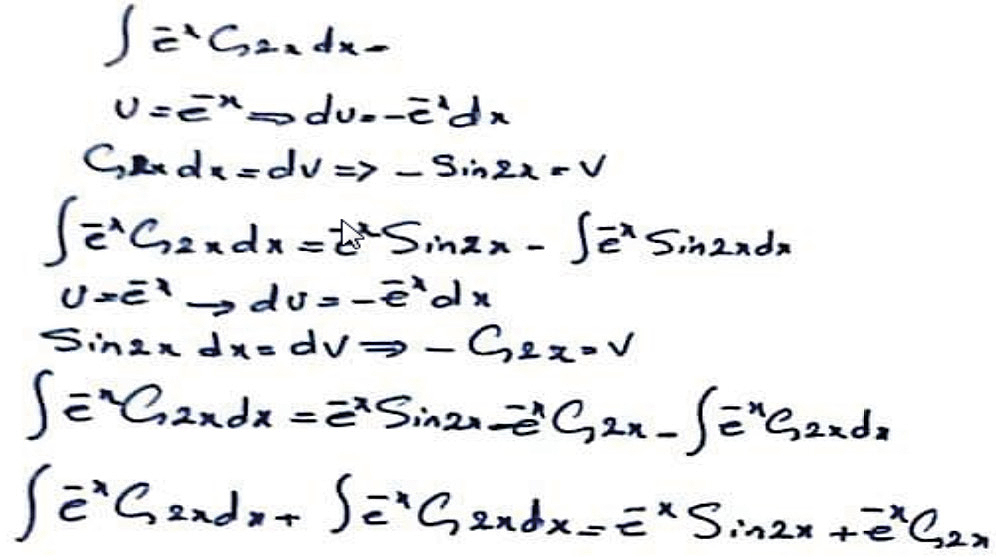 ∫ e⁻ˣ Cos2x dx =
u = e⁻ˣ ⇒ du = -e⁻ˣ dx
Cos2x dx = dv => - Sin2x = v
∫ e⁻ˣ Cos2x dx = e⁻ˣ Sin2x - ∫ e⁻ˣ Sin2x dx
u = e⁻ˣ → du = -e⁻ˣ dx
Sin2x dx = dv ⇒ - Cos2x = v
∫ e⁻ˣ Cos2x dx = e⁻ˣ Sin2x - e⁻ˣ Cos2x - ∫ e⁻ˣ Cos2x dx
∫ e⁻ˣ Cos2x dx + ∫ e⁻ˣ Cos2x dx = e⁻ˣ Sin2x + e⁻ˣ Cos2x